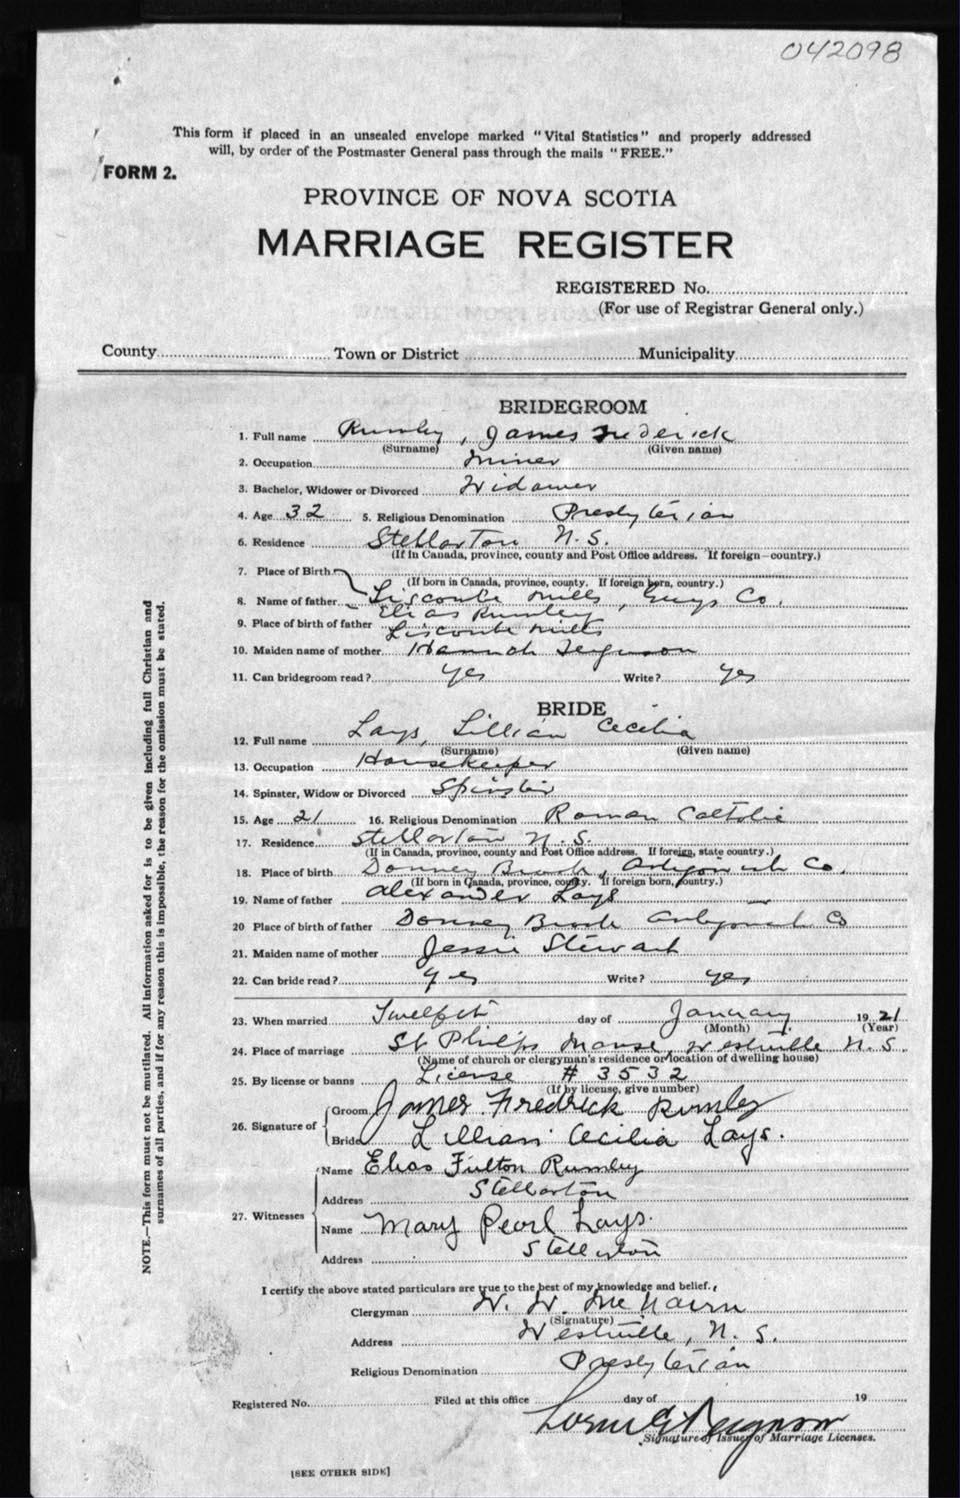 042098
This form if placed in an unsealed envelope marked "Vital Statistics" and properly addressed
will, by order of the Postmaster General pass through the mails "FREE."
FORM 2.
PROVINCE OF NOVA SCOTIA
MARRIAGE REGISTER
REGISTERED No.
(For use of Registrar General only.)
County Town or District Municipality
BRIDEGROOM
1. Full name Rumley, James Frederick
(Surname) (Given name)
2. Occupation Miner
3. Bachelor, Widower or Divorced Widower
4. Age 32 5. Religious Denomination Presbyterian
6. Residence Stellarton N.S.
(If in Canada, province, county and Post Office address. If foreign—country.)
7. Place of Birth
(If born in Canada, province, county. If foreign born, country.)
Liscombe Mills, Guys Co.
8. Name of father Elias Rumley
9. Place of birth of father Liscomb Mills
10. Maiden name of mother Hannah Ferguson
11. Can bridegroom read? Yes Write? Yes
BRIDE
12. Full name Lays, Lillian Cecilia
(Surname) (Given name)
13. Occupation Housekeeper
14. Spinster, Widow or Divorced Spinster
15. Age 21 16. Religious Denomination Roman Catholic
17. Residence Stellarton N.S.
(If in Canada, province, county and Post Office address. If foreign, state country.)
18. Place of birth Donney Brook, Antigonish Co.
(If born in Canada, province, county. If foreign born, country.)
19. Name of father Alexander Lays
20 Place of birth of father Donney Brook Antigonish Co
21. Maiden name of mother Jessie Stewart
22. Can bride read? Yes Write? Yes
23. When married Twelfth day of January 1921
(Month) (Year)
24. Place of marriage St Philips Manse, Westville N.S.
(Name of church or clergyman's residence or location of dwelling house)
25. By license or banns License # 3532
(If by license, give number)
26. Signature of Groom James Fredrick Rumley
Bride Lillian Cecilia Lays.
27. Witnesses Name Elias Fulton Rumley
Address Stellarton
Name Mary Pearl Lays.
Address Stellarton
I certify the above stated particulars are true to the best of my knowledge and belief.
Clergyman W. W. McNairn
(Signature)
Address Westville, N. S.
Religious Denomination Presbyterian
Registered No. Filed at this office day of 19
Signature of Issuer of Marriage Licenses.
[SEE OTHER SIDE]
NOTE.—This form must not be mutilated. All information asked for is to be given including full Christian and
surnames of all parties, and if for any reason this is impossible, the reason for the omission must be stated.